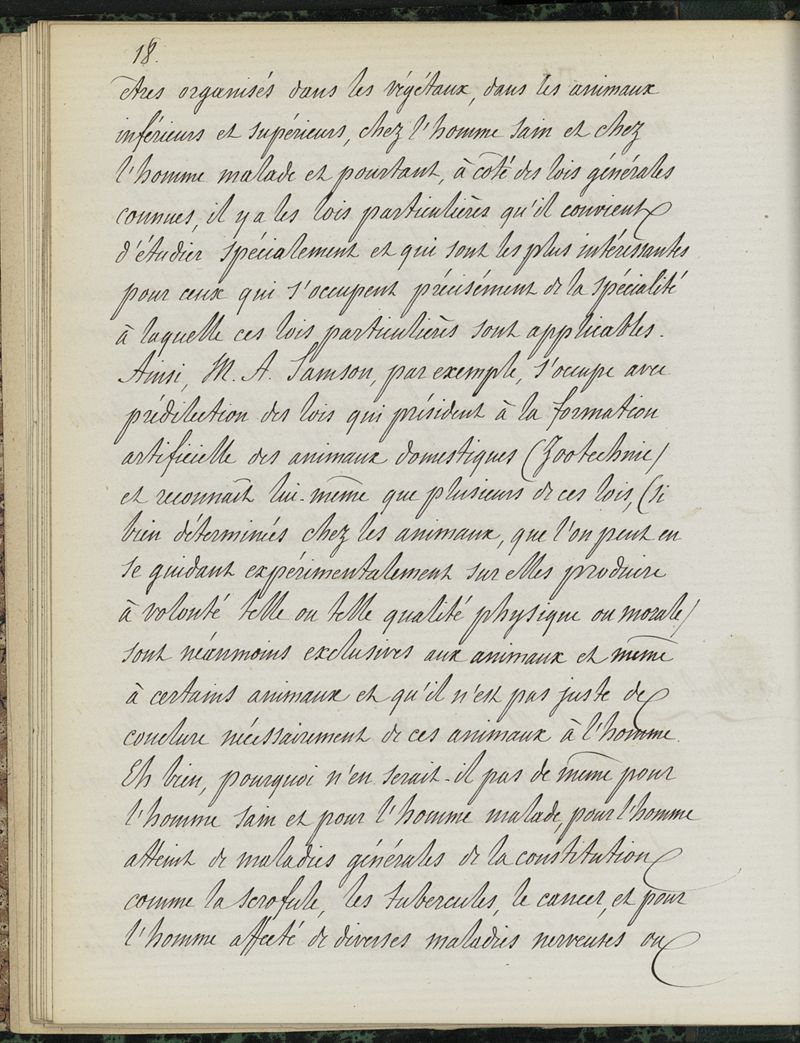 18.
êtres organisés dans les végétaux, dans les animaux
inférieurs et supérieurs, chez l'homme sain et chez
l'homme malade et pourtant, à côté des lois générales
connues, il y a les lois particulières qu'il convient
d'étudier spécialement et qui sont les plus intéressantes
pour ceux qui s'occupent précisément de la spécialité
à laquelle ces lois particulières sont applicables.
Ainsi, M. A. Samson, par exemple, s'occupe avec
prédilection des lois qui président à la formation
artificielle des animaux domestiques (Zootechnie)
et reconnaît lui-même que plusieurs de ces lois, (si
bien déterminées chez les animaux, que l'on peut en
se guidant expérimentalement sur elles produire
à volonté telle ou telle qualité physique ou morale)
sont néanmoins exclusives aux animaux et même
à certains animaux et qu'il n'est pas juste de
conclure nécessairement de ces animaux à l'homme.
Eh bien, pourquoi n'en serait-il pas de même pour
l'homme sain et pour l'homme malade, pour l'homme
atteint de maladies générales de la constitution
comme la scrofule, les tubercules, le cancer, et pour
l'homme affecté de diverses maladies nerveuses ou